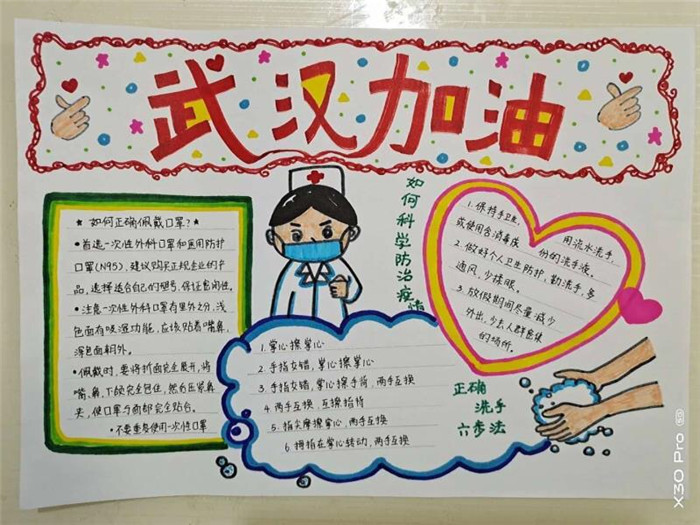 武汉加油
★ 如何正确佩戴口罩？★
●首选一次性外科口罩和医用防护
口罩(N95)，建议购买正规企业的产
品，选择适合自己的型号，保证密闭性。
●注意一次性外科口罩有里外之分，浅
色面有吸湿功能，应该贴着嘴鼻，
深色面朝外。
●佩戴时，要将折面完全展开，将
嘴、鼻、下颌完全包住，然后压紧鼻
夹，使口罩与面部完全贴合。
●不要重复使用一次性口罩
如何科学防治疫情
1.保持手卫生，用流水洗手，
或使用含消毒成份的洗手液。
2.做好个人卫生防护，勤洗手，多
通风，少揉眼。
3.放假期间尽量减少
外出，少去人群密集
的场所。
1.掌心擦掌心
2.手指交错，掌心擦掌心
3.手指交错，掌心擦手背，两手互换
4.两手互握，互擦指背
5.指尖摩擦掌心，两手互换
6.拇指在掌心转动，两手互换
正确
洗手
六步法
X30 Pro 5G